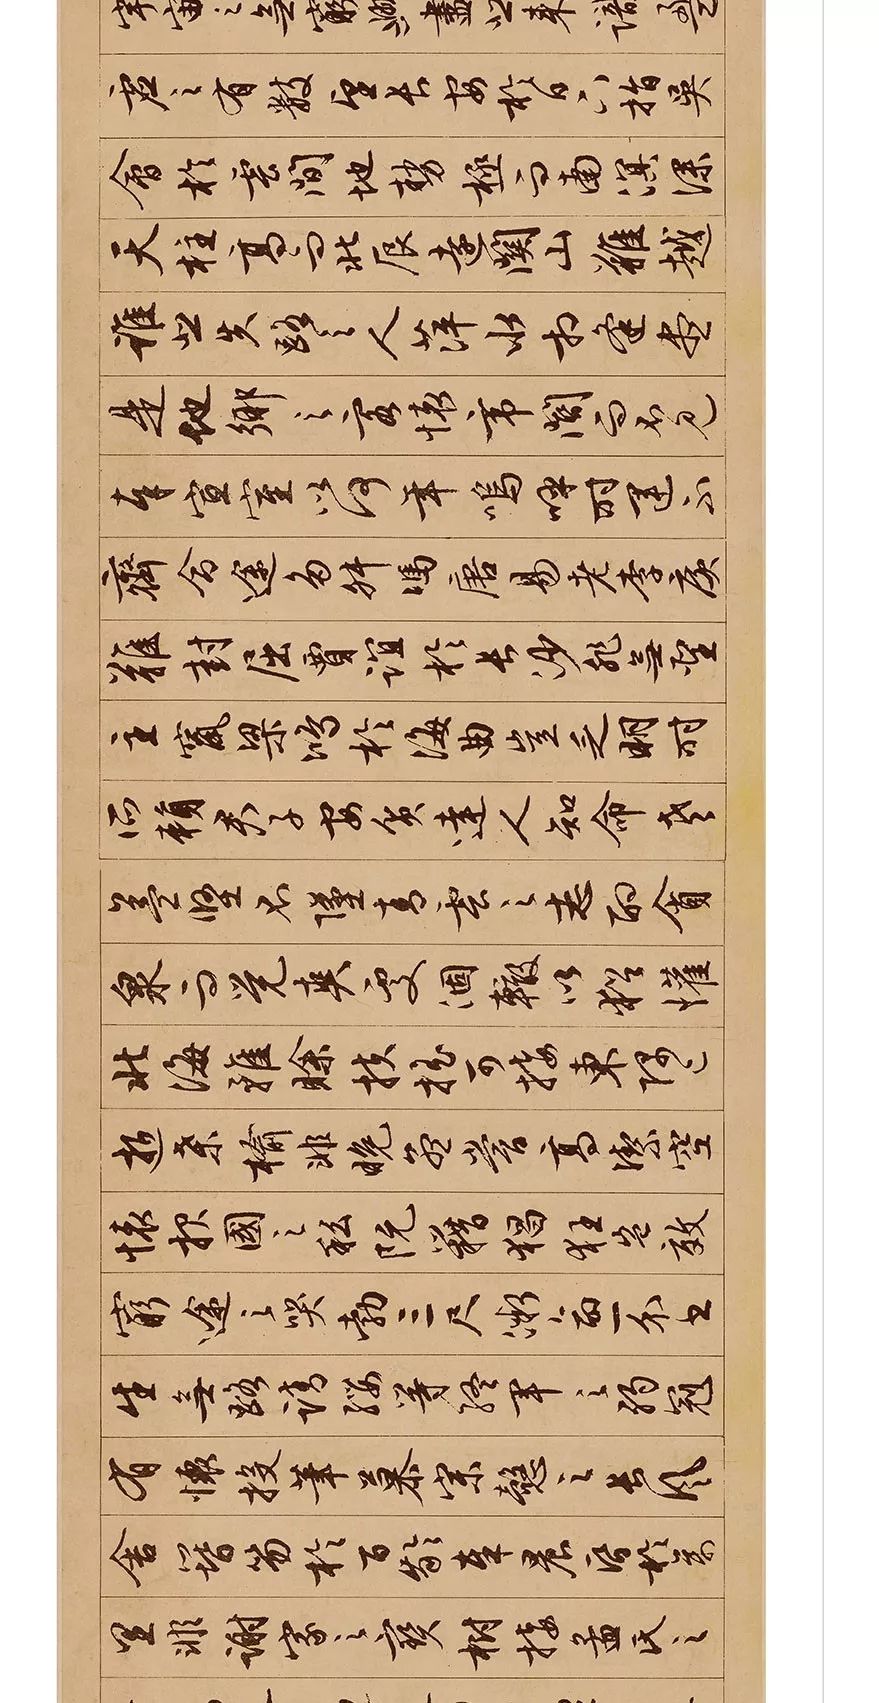 宇宙之無窮興盡悲來識盈
虛之有數望長安於日下指吳
會於雲間地勢極而南溟深
天柱高而北辰遠關山難越
誰悲失路之人萍水相逢盡
是他鄉之客懷帝閽而不見
奉宣室以何年嗚呼時運不
齊命途多舛馮唐易老李廣
難封屈賈誼於長沙非無聖
主竄梁鴻於海曲豈乏明時
所賴君子安貧達人知命老
益堅不墜青雲之志酌貪
泉而覺爽處涸轍以猶懽
北海雖賒扶搖可接東隅已
逝桑榆非晚孟嘗高潔空
懷報國之私阮籍猖狂豈效
窮途之哭勃三尺微命一介書
生無路請纓等終軍之弱冠
有懷投筆慕宗愨之長風
舍簪笏於百齡奉晨昏於萬
里非謝家之寶樹接孟氏之